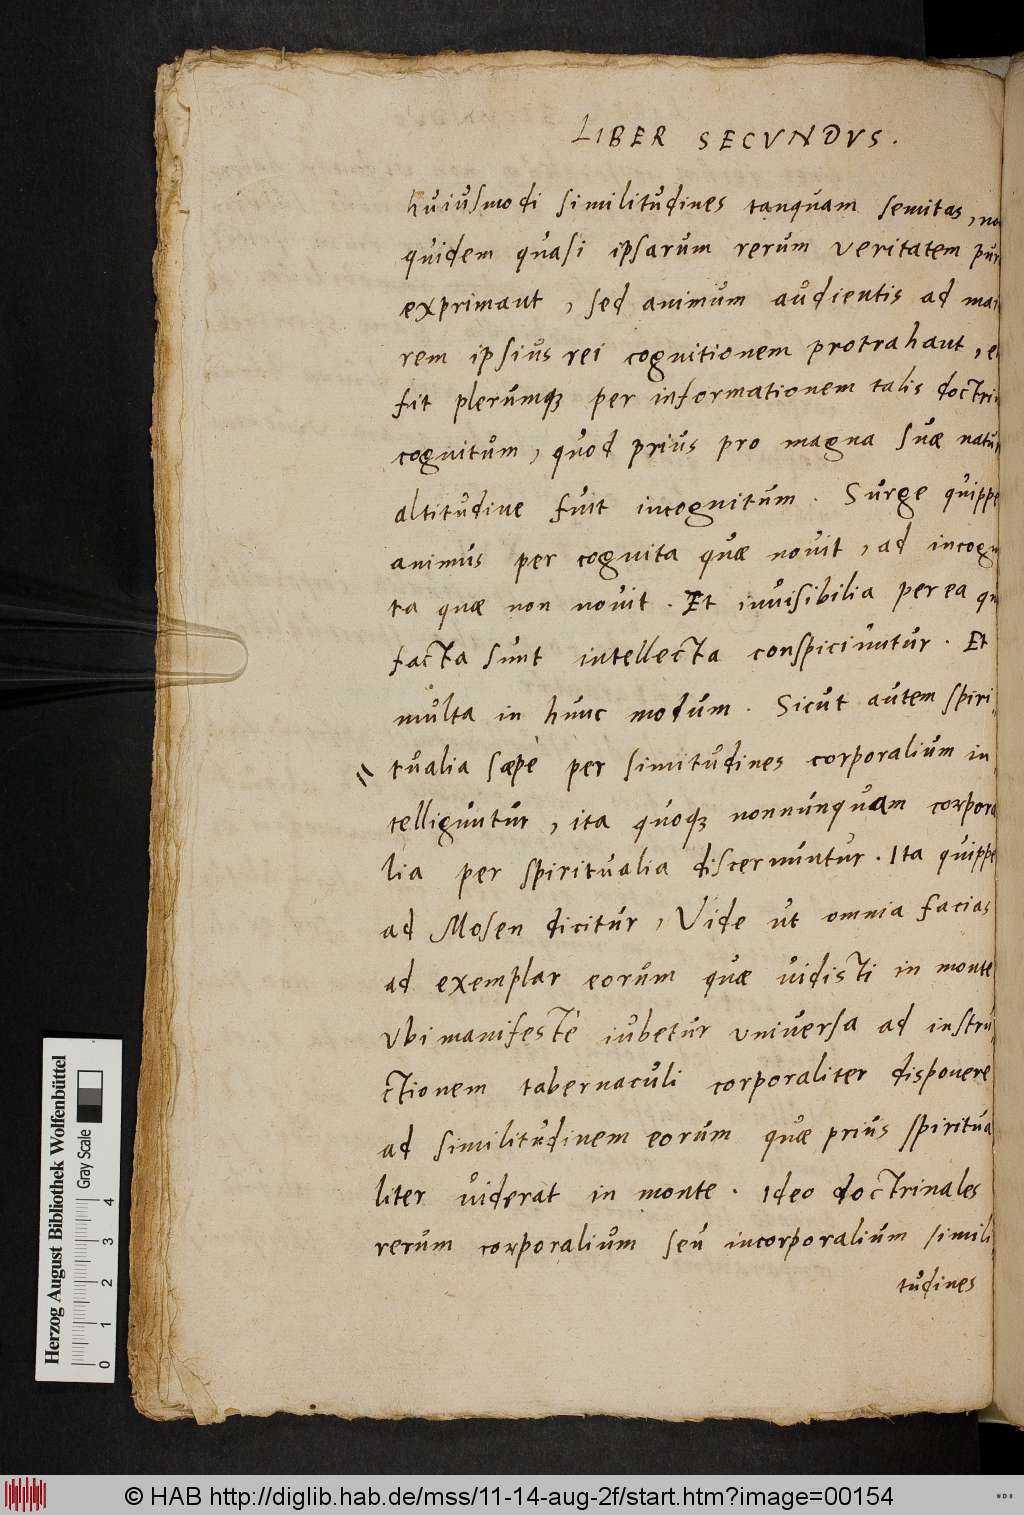 LIBER SECVNDVS.
huiusmodi similitudines tanquam semitas, no
quidem quasi ipsarum rerum veritatem pur
exprimant, sed animum audientis ad mai
rem ipsius rei cognitionem protrahant, e
fit plerumq; per informationem talis doctri
cognitum, quod prius pro magna suæ natur
altitudine fuit incognitum. Surge quippe
animus per cognita quæ novit, ad incogn
ta quæ non novit. Et invisibilia per ea qu
facta sunt intellecta conspiciuntur. Et
multa in hunc modum. Sicut autem spiri„
tualia sæpè per simitudines corporalium in„
telliguntur, ita quoq; nonnunquam corpora
lia per spiritualia discernuntur. Ita quippe
ad Mosen dicitur, Vide ut omnia facias
ad exemplar eorum quæ vidisti in monte
Vbi manifestè iubetur universa ad instru„
ctionem tabernaculi corporaliter disponere
ad similitudinem eorum quæ prius spiritua
liter viderat in monte. Ideo doctrinales
rerum corporalium seu incorporalium simili
tudines
Herzog August Bibliothek Wolfenbüttel
Gray Scale
0 1 2 3 4
© HAB http://diglib.hab.de/mss/11-14-aug-2f/start.htm?image=00154